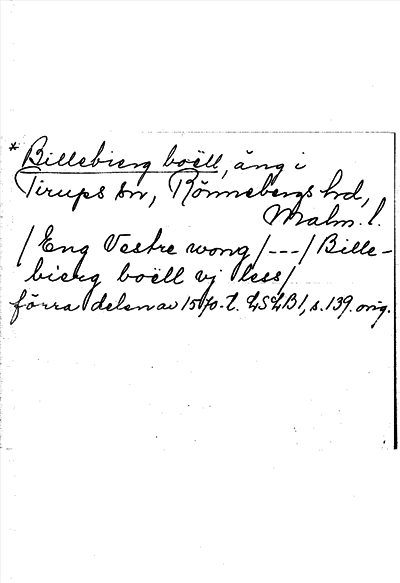 * Billebierg boëll, äng i
Tirups sn, Rönnebergs hd,
Malm. l.
/ Eng Vestre wong / --- / Bille-
bierg boëll vj less /
förra delen av 1570-t. LSLB1, s. 139. orig.